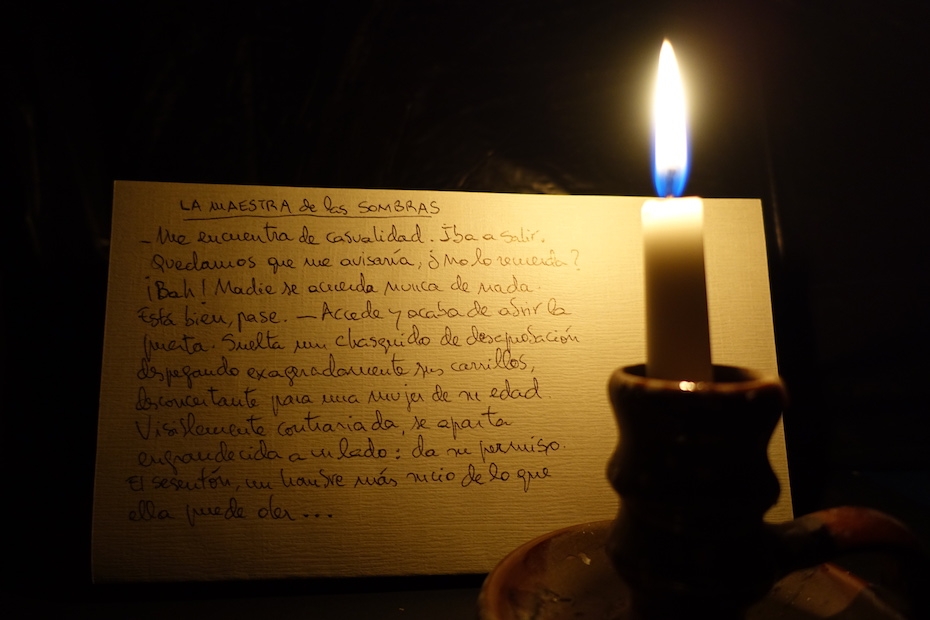 LA MAESTRA de las SOMBRAS
- Me encuentra de casualidad. Iba a salir.
Quedamos que me avisaría, ¿no lo recuerda?
¡Bah! Nadie se acuerda nunca de nada.
Está bien, pase. — Accede y acaba de abrir la
puerta. Suelta un chasquido de desaprobación
despegando exageradamente sus carrillos,
desconcertante para una mujer de su edad.
Visiblemente contrariada, se aparta
engrandecida a un lado: da su permiso.
El sesentón, un hombre más sucio de lo que
ella puede oler ...